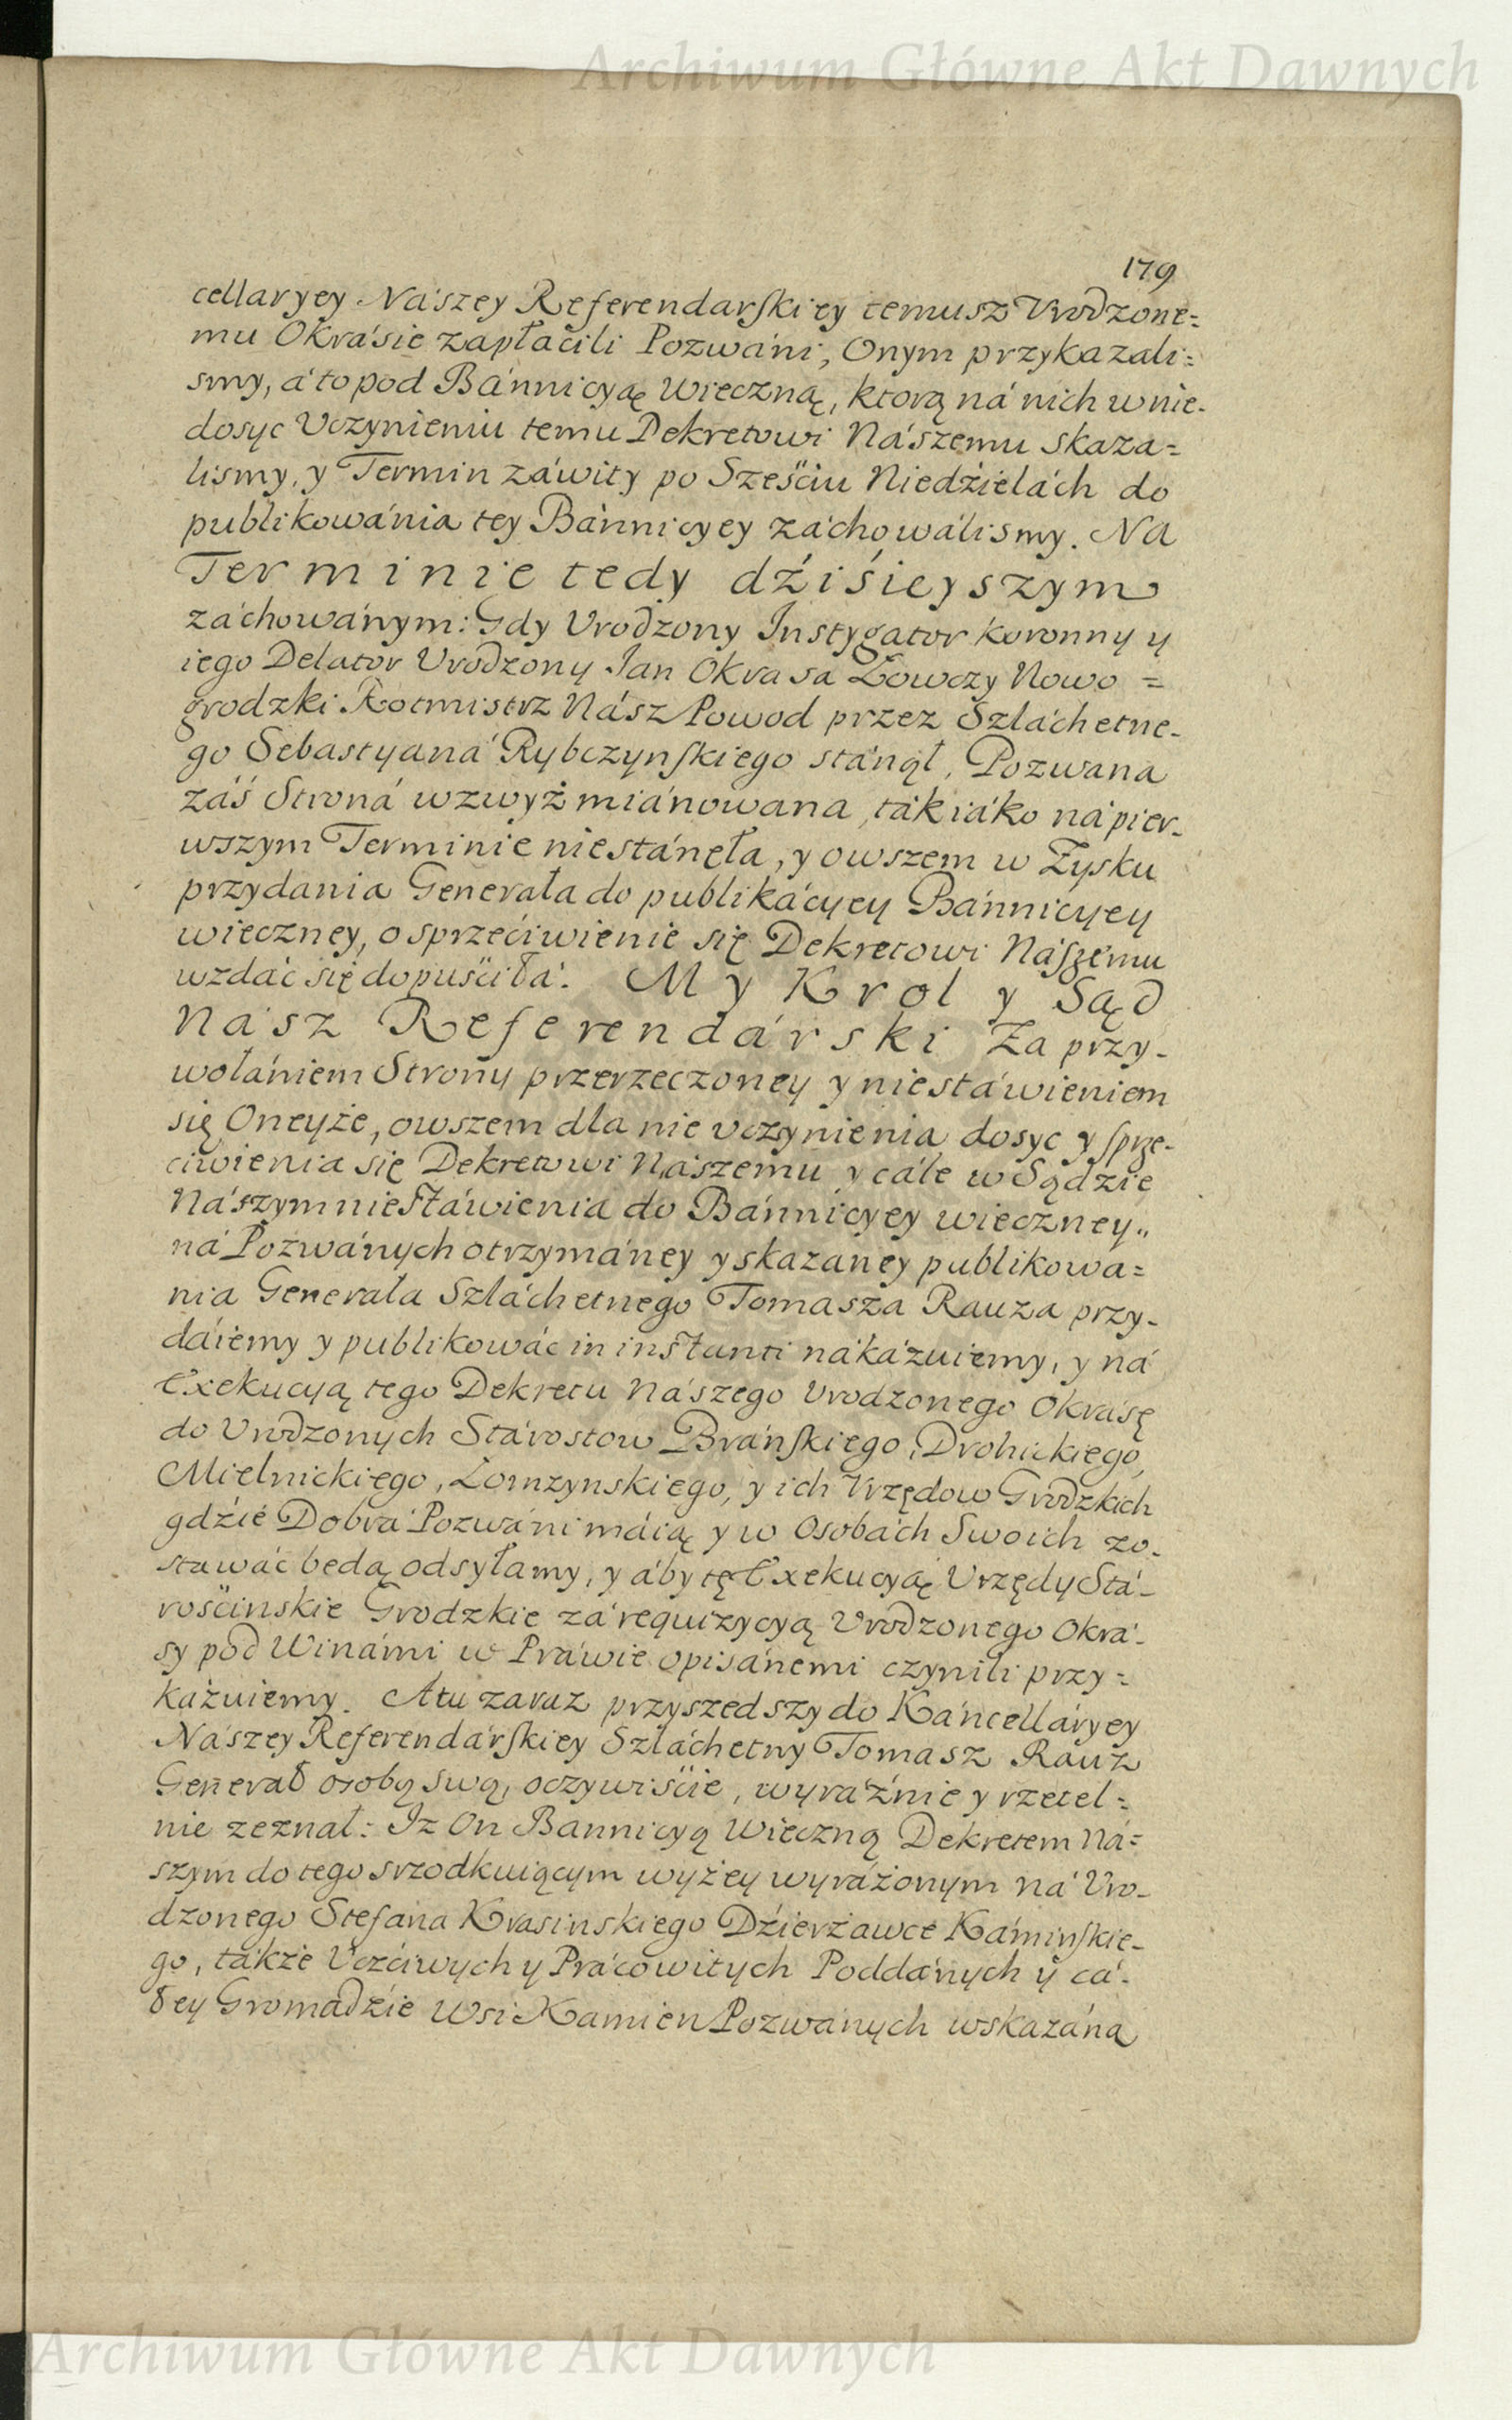 Archiwum Główne Akt Dawnych
179
cellaryey Nászey Referendarskiey temusz Vrodzone=
mu Okrásie zapłacili Pozwáni, Onym przykazali=
smy, á to pod Bánnicyąę Wieczną, ktorą ná nich w nie-
dosyc Vczynieniu temu Dekretowi Nászemu skaza=
lismy, y Termin záwity po Sześciu Niedźielách do
publikowánia tey Bánnicyey záchowálismy. Na
Terminie tedy dźiśieyszym
záchowánym: Gdy Vrodzony Instygator koronny y
iego Delator Vrodzony Ian Okrasa Łowczy Nowo=
grodzki Rotmistrz Nász Powod przez Szláchetne-
go Sebastyaná Rybczynskiego stánął, Pozwana
záś Stroná wzwyż miánowana, ták iáko ná pier-
wszym Terminie niestánęła, y owszem w Zysku
przydania Generała do publikácyey Bánnicyey
wieczney, o sprzećiwienie się Dekretowi Nászemu
wzdáć się dopuśćiłá. My Krol y Sąd
Nász Referendárski Za przy-
wołániem Strony przerzeczoney y niestáwieniem
się Oneyże, owszem dla nie vczynienia dosyc y sprze-
ciwienia się Dekretowi Nászemu y cále w Sądzie
Nászym nie Stáwienia do Bánnicyey wieczney„
ná Pozwánych otrzymáney y skazaney publikowa=
nia Generała Szláchetnego Tomasza Rauza przy-
dáiemy y publikowác in instanti nákázuiemy, y ná
Exekucyą tego Dekretu Nászego Vrodzonego Okrásę
do Vrodzonych Stárostow Bránskiego, Drohickiego,
Mielnickiego, Łomzynskiego, y ich Vrzędow Grodzkich
gdźié Dobrá Pozwáni máią y w Osobách Swoich zo-
stawáć bedą odsyłamy, y áby tę Exekucyąę Vrzędy Stá-
rośćinskie Grodzkie zá requizycyą Vrodzonego Okrá-
sy pod Winámi w Práwie opisánemi czynili przy=
kázuiemy. A tu zaraz przyszedszy do Káncelláryey
Nászey Referendárskiey Szláchetny Tomasz Rauz
Generał osobą swą, oczywiśćie, wyráźnie y rzetel=
nie zeznał: Iz On Bannicyą Wieczną Dekretem Ná=
szym do tego srzodkuiącym wyżey wyráżonym ná Vro-
dzonego Stefana Krasinskiego Dźierżawce Káminskie-
go, tákże Vczćiwych y Prácowitych Poddánych ÿ cá-
łey Gromadźie Wsi Kamien Pozwánych wskazána
Archiwum Główne Akt Dawnych